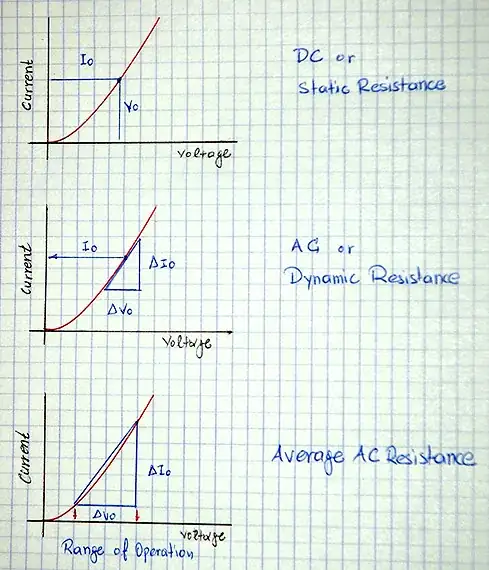 Current
Io
Vo
Voltage
DC or
Static Resistance
Current
Io
ΔIo
ΔVo
Voltage
AC or
Dynamic Resistance
Current
ΔIo
ΔVo
Voltage
Range of Operation
Average AC Resistance